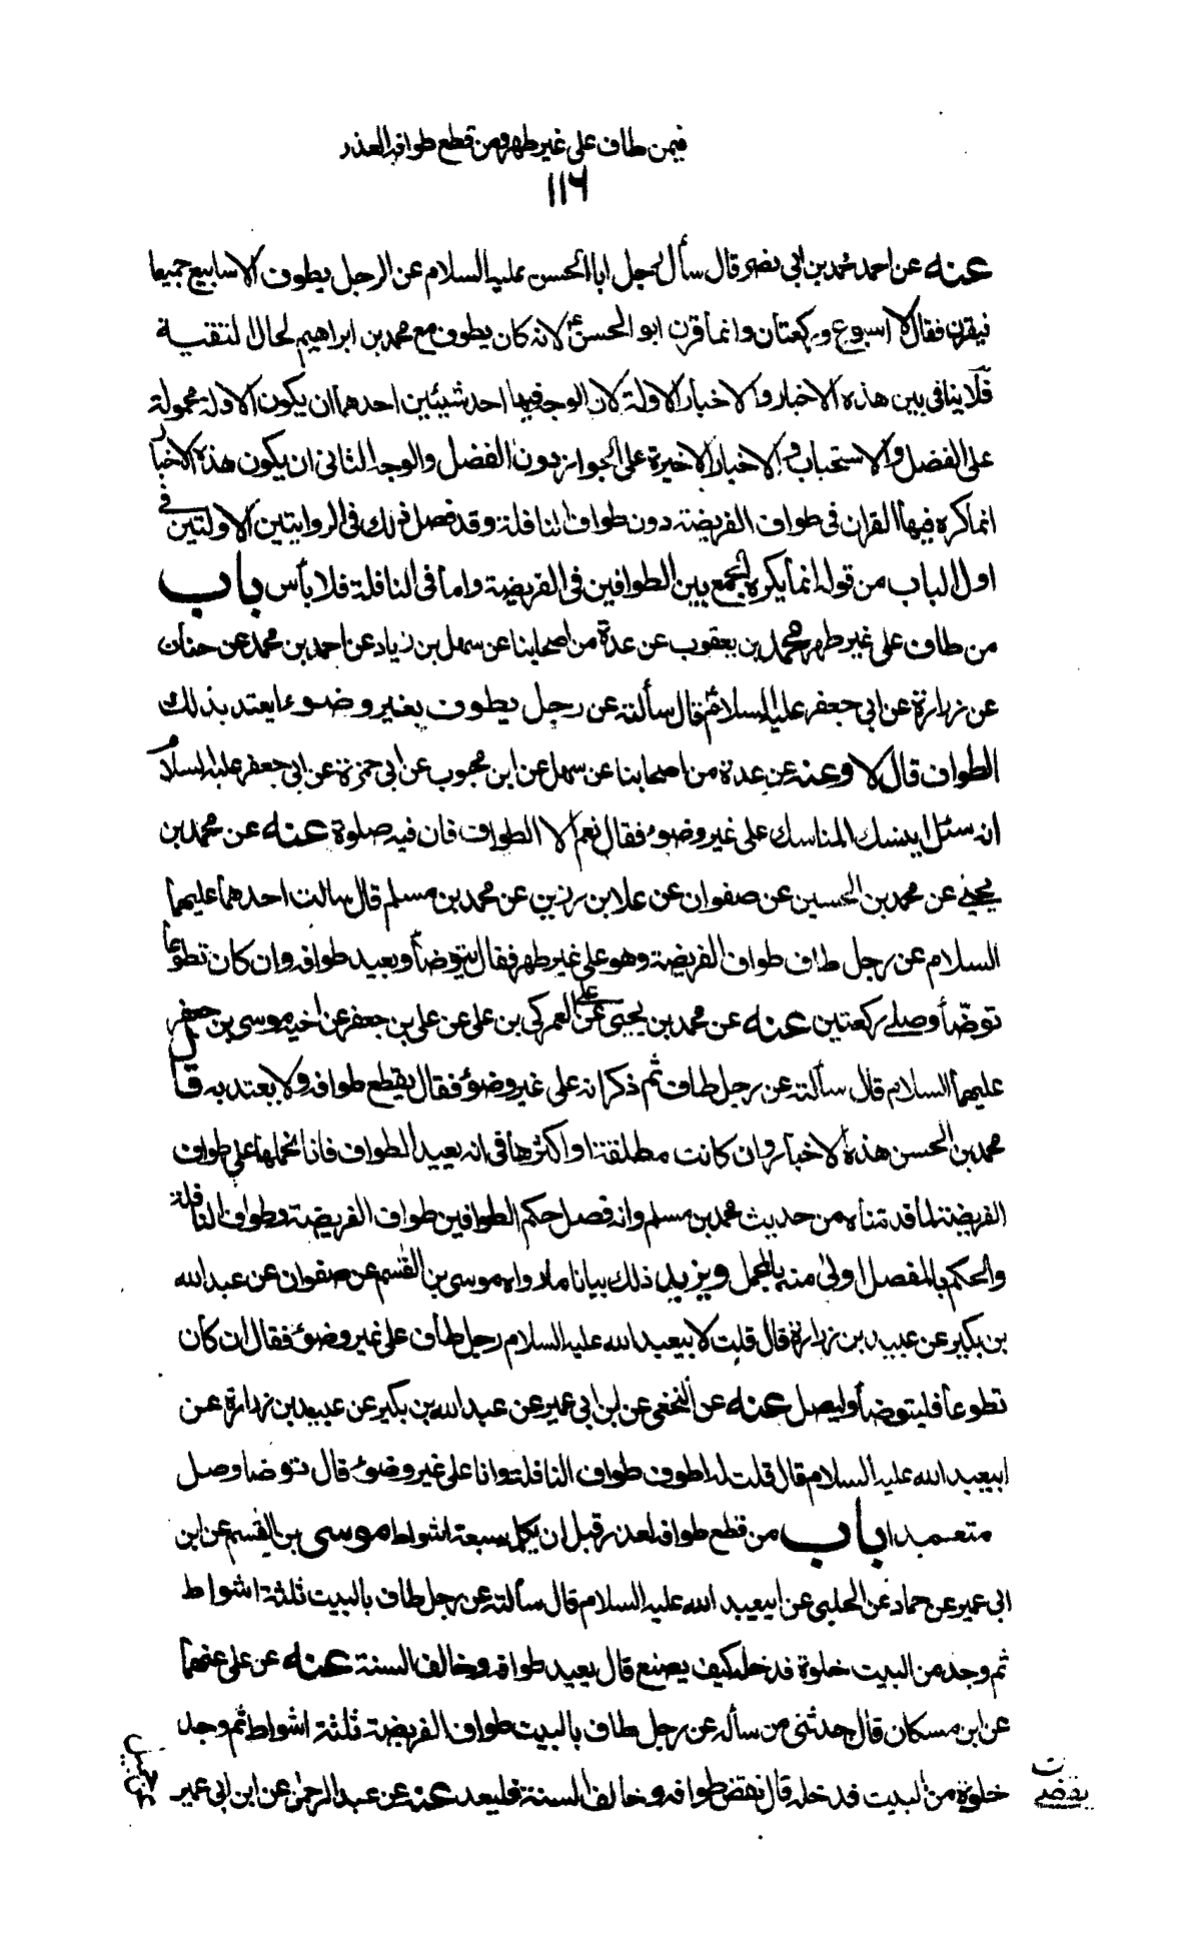 فيمن طاف على غير طهر ومن قطع طوافه العذر
١١٦
عنه عن احمد محمد بن ابى نصر قال سأل رجل ابا الحسن عليه السلام عن الرجل يطوف الاسابيع جميعا
فيقرن فقال لا اسبوع وركعتان وانما قرن ابو الحسن ع لانه كان يطوف مع محمد بن ابراهيم لحال التقية
فلا ينافى بين هذه الاخبار والاخبار الاولة لان الوجه فيها احد شيئين احدهما ان يكون الاولة محمولة
على الفضل والاستحباب والاخبار الاخيرة على الجواز دون الفضل والوجه الثانى ان يكون هذه الاخبار
انما كره فيها القران فى طواف الفريضة دون طواف النافلة وقد فصل ذلك فى الروايتين الاولتين فى
اول الباب من قوله انما يكره الجمع بين الطوافين فى الفريضة واما فى النافلة فلا بأس باب
من طاف على غير طهر محمد بن يعقوب عن عدة من اصحابنا عن سهل بن زياد عن احمد بن محمد عن حنان
عن زرارة عن ابى جعفر عليه السلام قال سألته عن رجل يطوف بغير وضوء ايعتد بذلك
الطواف قال لا وعنه عن عدة من اصحابنا عن سهل عن ابن محبوب عن ابى حمزة عن ابى جعفر عليه السلام
انه سئل اينسك المناسك على غير وضوء فقال نعم الا الطواف فان فيه صلوة عنه عن محمد بن
يحيى عن محمد بن الحسين عن صفوان عن علا بن رزين عن محمد بن مسلم قال سالت احدهما عليهما
السلام عن رجل طاف طواف الفريضة وهو على غير طهر فقال يتوضأ ويعيد طوافه وان كان تطوعا
توضّأ وصلى ركعتين عنه عن محمد بن يحيى عن العمركى بن على عن على بن جعفر عن اخيه موسى بن جعفر
عليهما السلام قال سألته عن رجل طاف ثم ذكر انه على غير وضوء فقال يقطع طوافه ولا يعتد به قال
محمد بن الحسن هذه الاخبار وان كانت مطلقة او اكثرها فى انه يعيد الطواف فانا نحملها على طواف
الفريضة لما قدمناه من حديث محمد بن مسلم وانه فصل حكم الطوافين طواف الفريضة وطواف النافلة
والحكم بالمفصل اولى منه بالمجمل ويزيد ذلك بيانا ما رواه موسى بن القسم عن صفوان عن عبد الله
بن بكير عن عبيد بن زرارة قال قلت لابيعبد الله عليه السلام رجل طاف على غير وضوء فقال ان كان
تطوعا فليتوضأ وليصل عنه عن النخعى عن ابن ابى عمير عن عبد الله بن بكير عن عبيد بن زرارة عن
ابيعبد الله عليه السلام قال قلت له اطوف طواف النافلة وانا على غير وضوء قال توضا وصل
متعمدا باب من قطع طوافه لعذر قبل ان يكمله سبعة اشواط موسى بن القسم عن ابن
ابى عمير عن حماد عن الحلبى عن ابيعبد الله عليه السلام قال سألته عن رجل طاف بالبيت ثلثة اشواط
ثم وجد من البيت خلوة فدخله كيف يصنع قال يعيد طوافه وخالف السنة عنه عن على عنهما
عن ابن مسكان قال حدثنى من سأله عن رجل طاف بالبيت طواف الفريضة ثلثة اشواط ثم وجد
خلوة من البيت فدخله قال نقض طوافه وخالف السنة فليعد عنه عن عبد الرحمن عن ابن ابى عمير